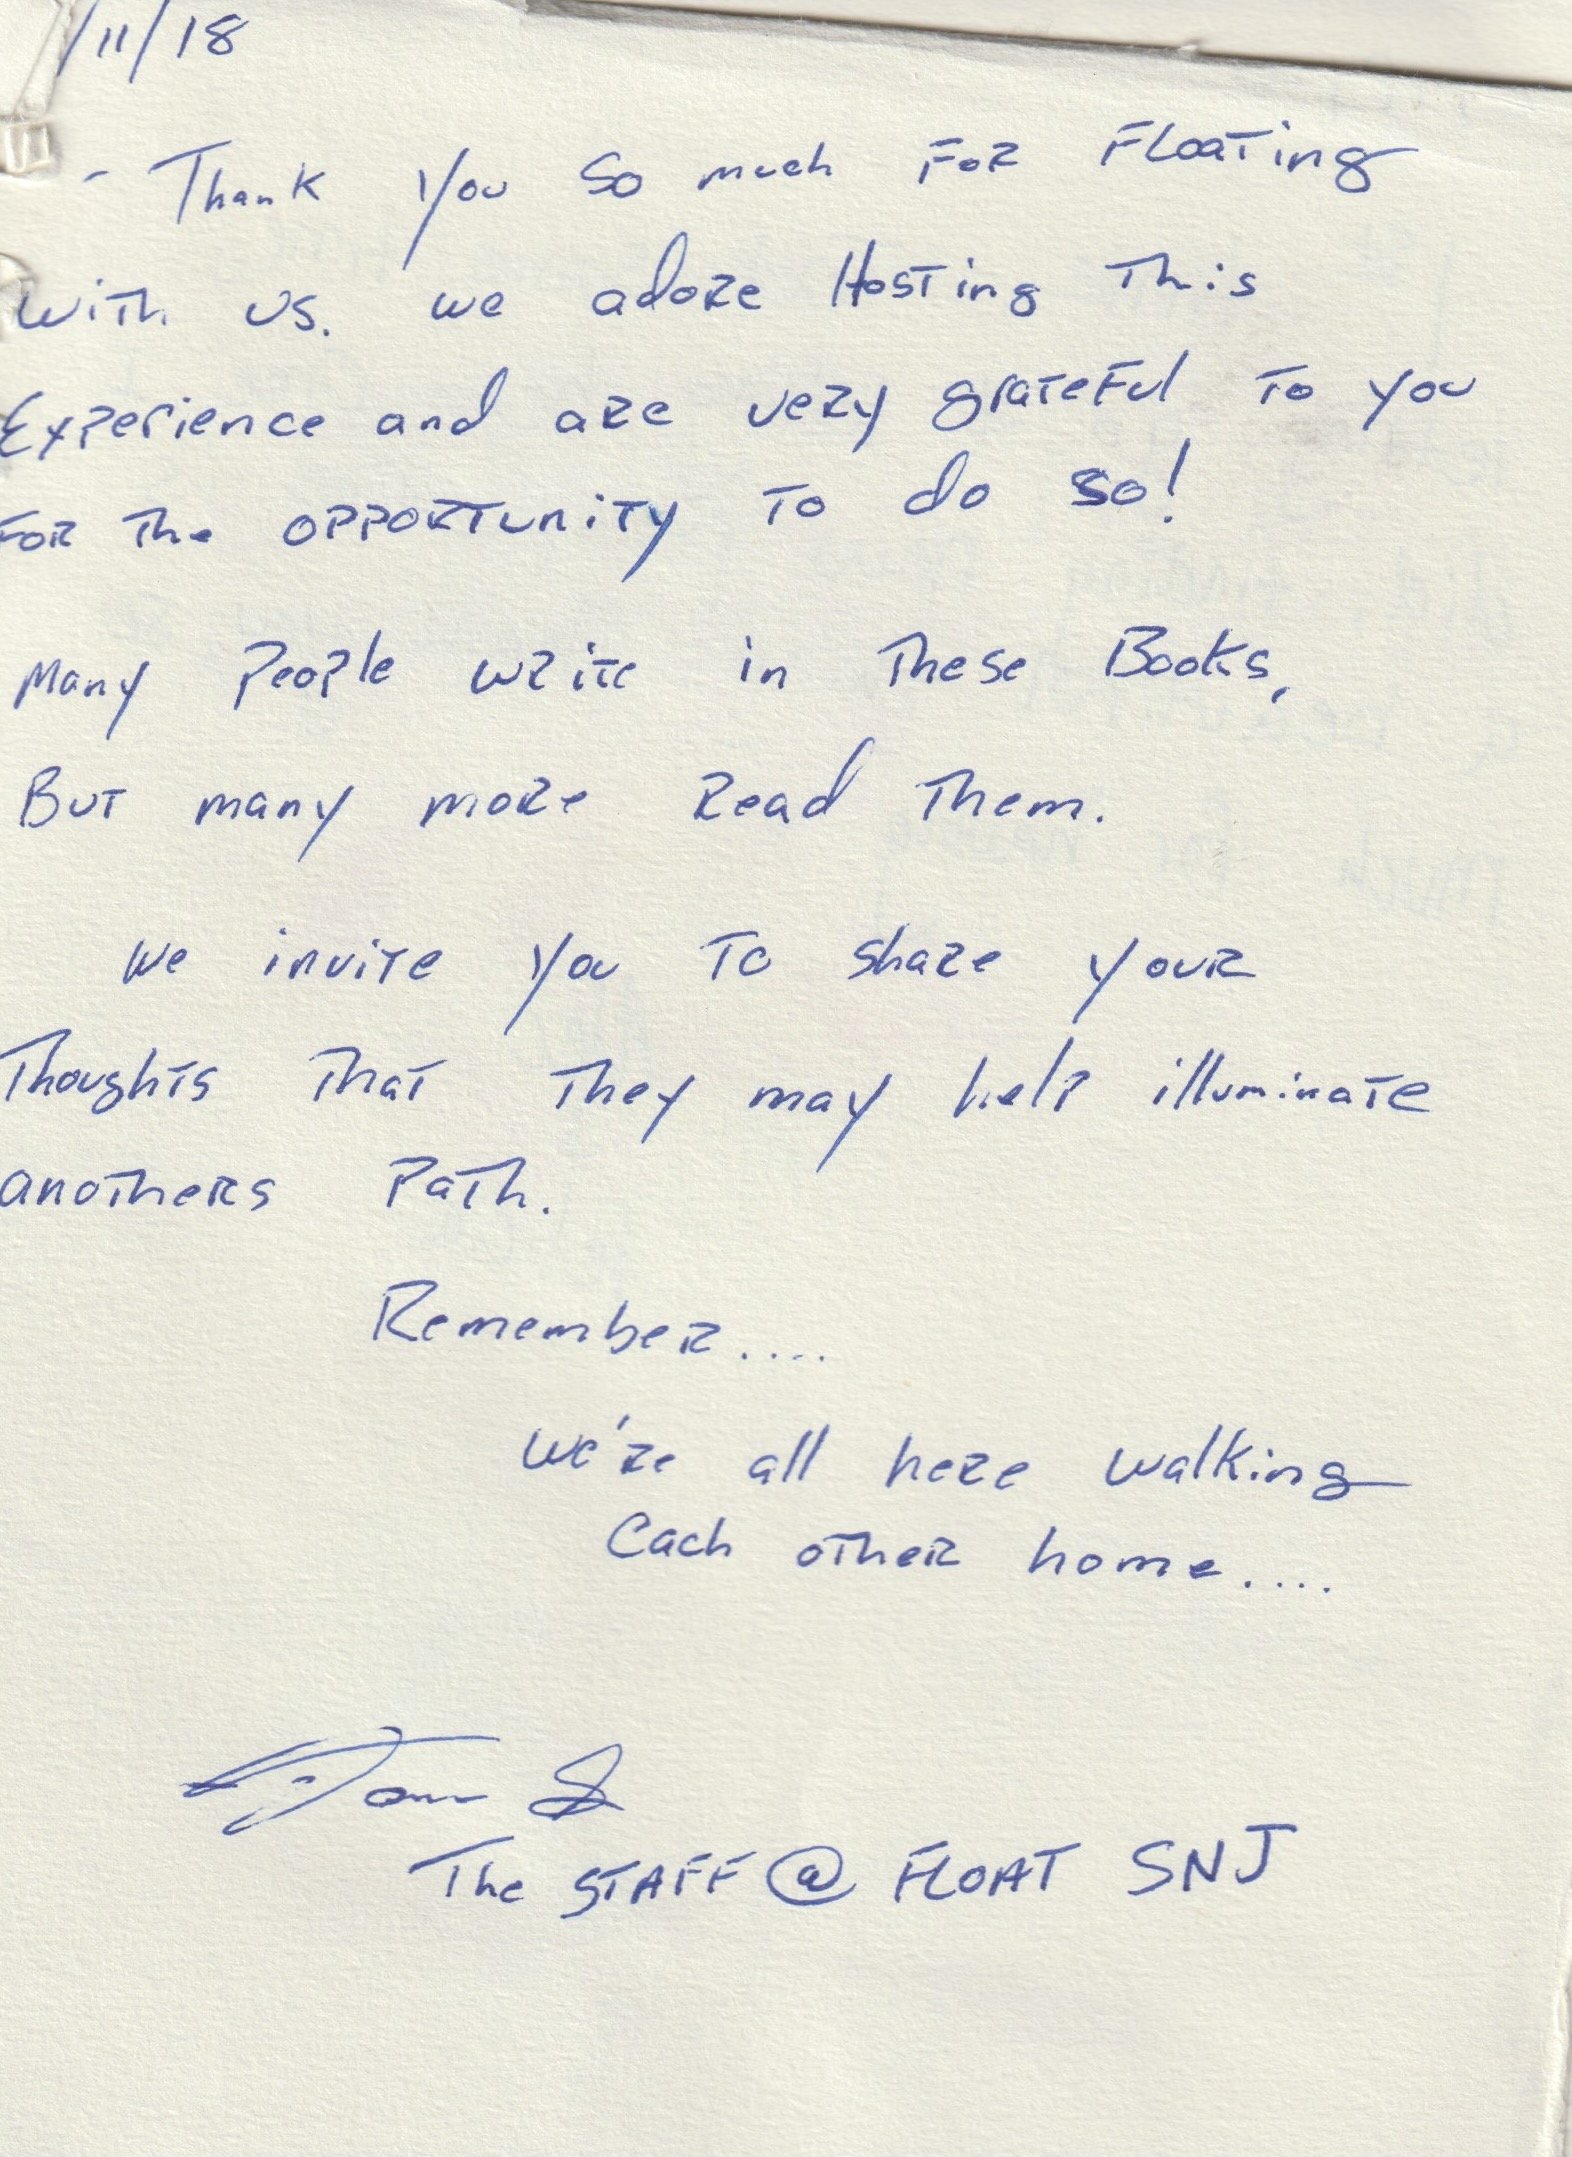 /11/18
- Thank you so much For Floating
with us. we adore Hosting This
Experience and are very grateful To you
For The opportunity To do so!
Many People write in These Books,
But many more read Them.
We invite you To share your
Thoughts That They may help illuminate
anothers Path.
Remember....
we're all here walking
Each other home....
The STAFF @ FLOAT SNJ